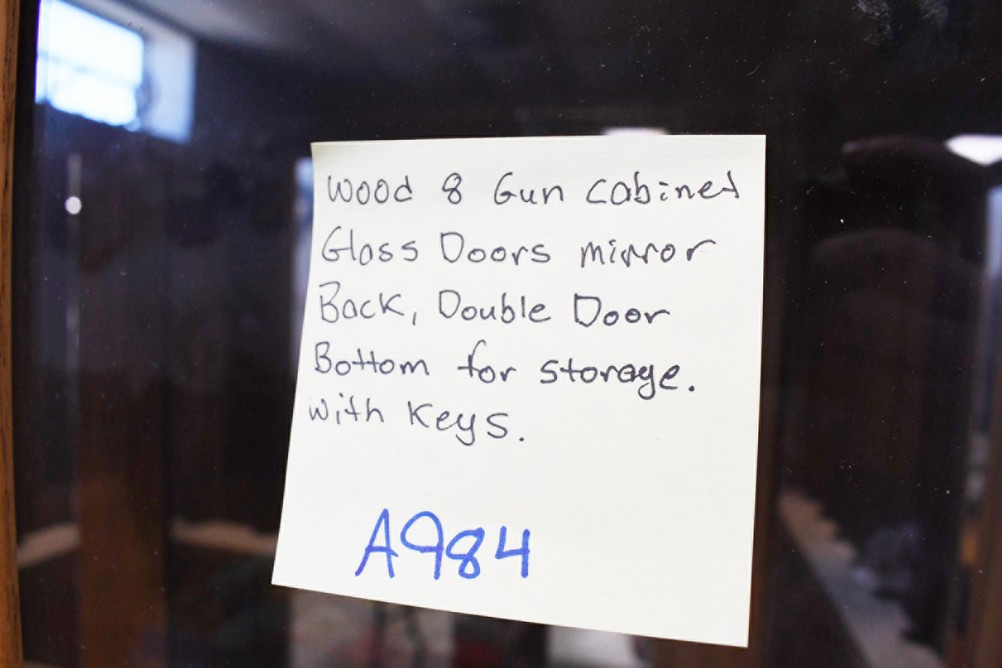 Wood 8 Gun cabinet
Glass Doors mirror
Back, Double Door
Bottom for storage.
with Keys.
A984